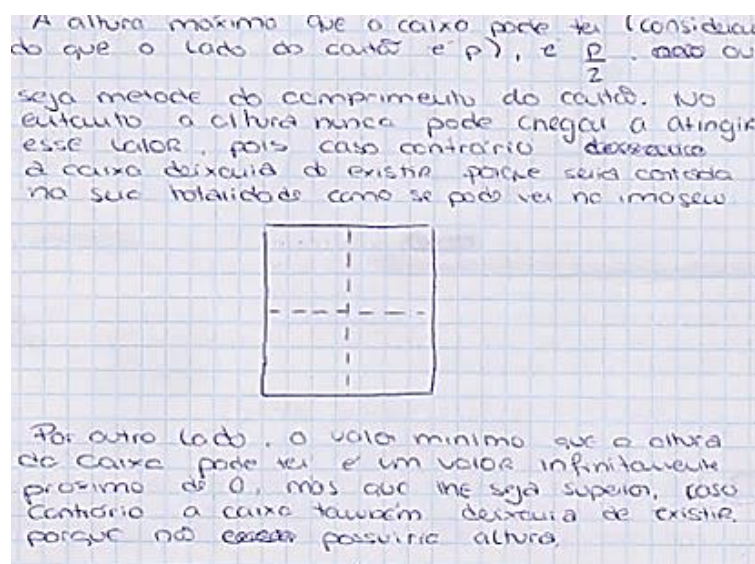 A altura máxima que a caixa pode ter (consideran
do que o lado do cartão é p), é p/2. ou
seja metade do comprimento do cartão. No
entanto a altura nunca pode chegar a atingir
esse valor, pois caso contrário
a caixa deixaria de existir porque seria cortada
na sua totalidade como se pode ver na imagem
Por outro lado, o valor mínimo que a altura
da caixa pode ter é um valor infinitamente
próximo de 0, mas que lhe seja superior, caso
contrário a caixa também deixaria de existir,
porque não possuiria altura.